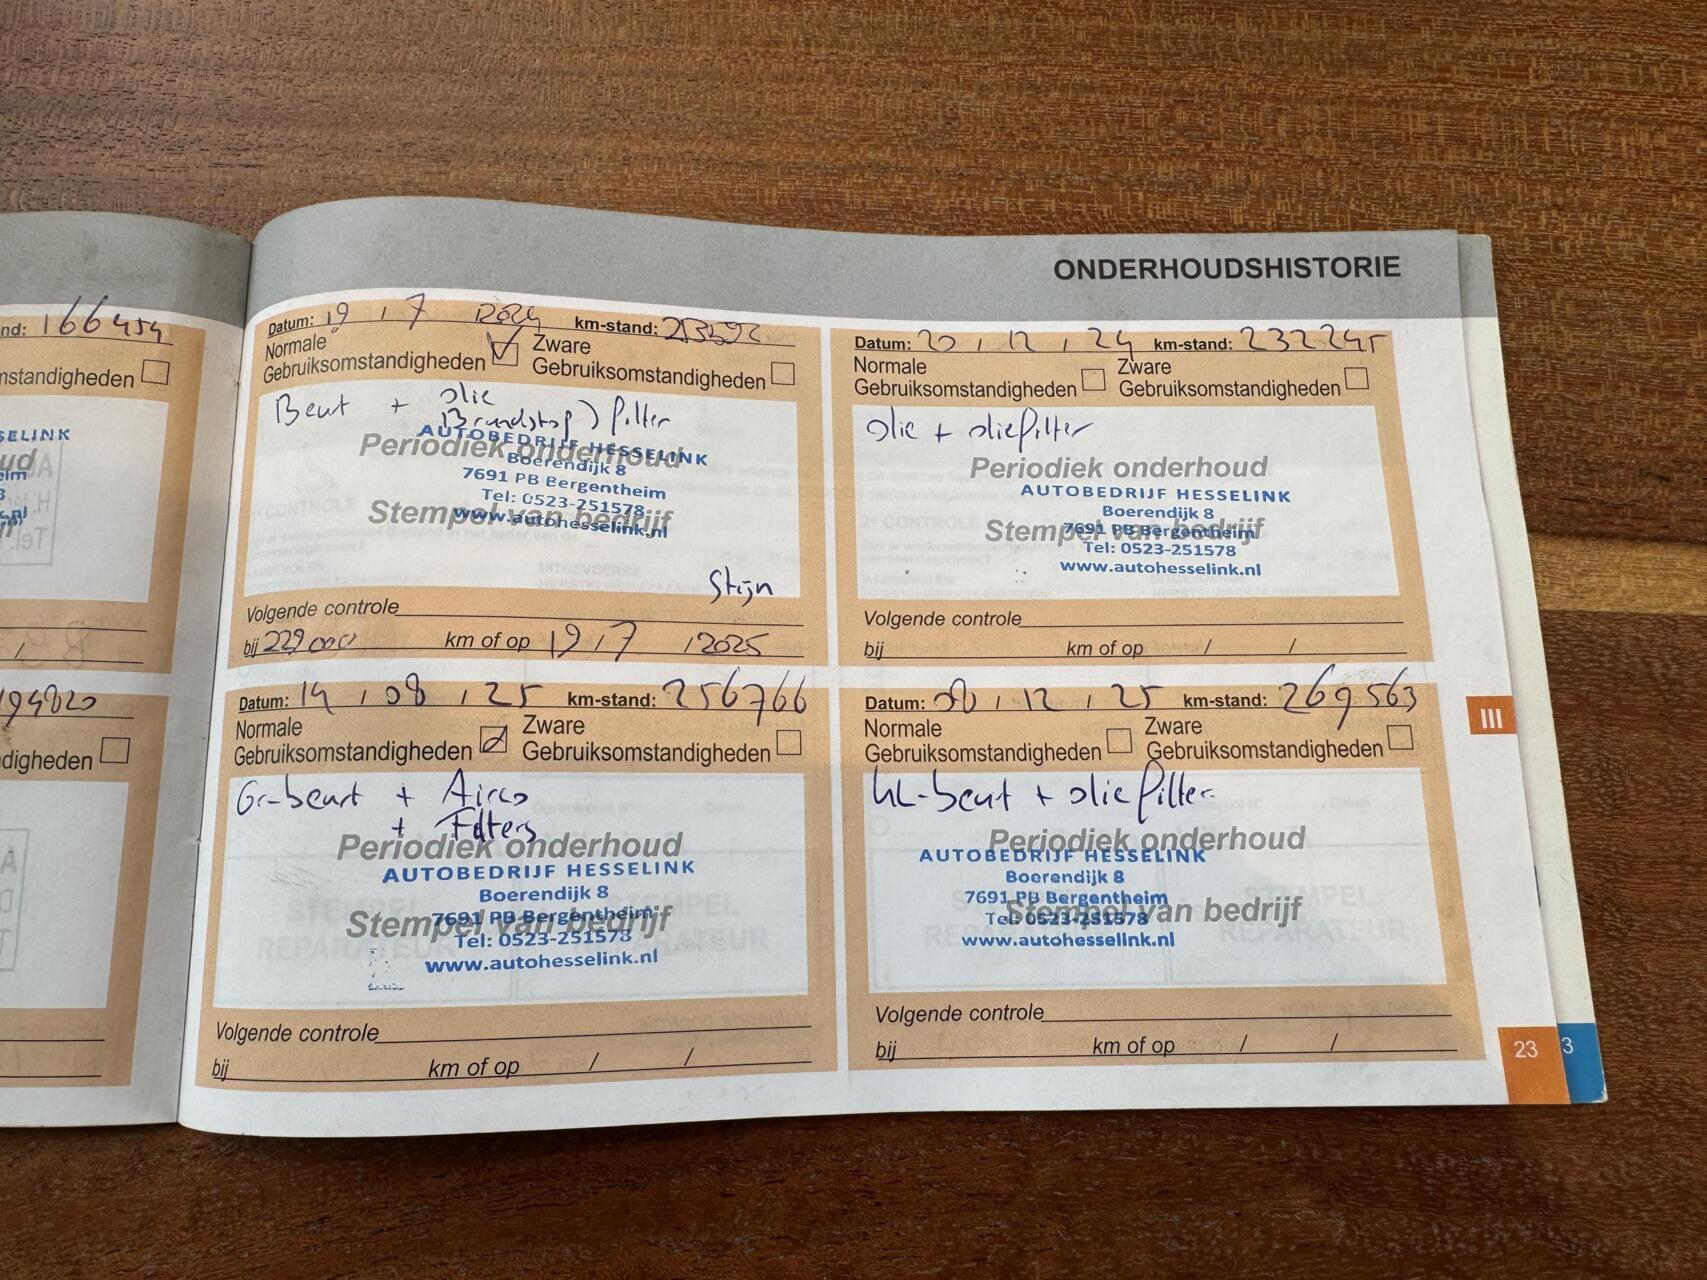 ONDERHOUDSHISTORIE
nd: 166454
mstandigheden
SELINK
194820
digheden
Datum: 19 / 7 2024 km-stand: 213592
Normale
Gebruiksomstandigheden
Zware
Gebruiksomstandigheden
Beurt + olie
Brandstof ) filter
Periodiek onderhoud
AUTOBEDRIJF HESSELINK
Boerendijk 8
7691 PB Bergentheim
Tel: 0523-251578
Stempel van bedrijf
www.autohesselink.nl
Stijn
Volgende controle
bij 229000 km of op 19 / 7 / 2025
Datum: 20 / 12 / 24 km-stand: 232245
Normale
Gebruiksomstandigheden
Zware
Gebruiksomstandigheden
olie + oliefilter
Periodiek onderhoud
AUTOBEDRIJF HESSELINK
Boerendijk 8
7691 PB Bergentheim
Stempel van bedrijf
Tel: 0523-251578
www.autohesselink.nl
Volgende controle
bij km of op / /
Datum: 14 / 08 / 25 km-stand: 256766
Normale
Gebruiksomstandigheden
Zware
Gebruiksomstandigheden
Gr-beurt + Airco
+ Filters
Periodiek onderhoud
AUTOBEDRIJF HESSELINK
Boerendijk 8
7691 PB Bergentheim
Stempel van bedrijf
Tel: 0523-251578
www.autohesselink.nl
Volgende controle
bij km of op / /
Datum: 08 / 12 / 25 km-stand: 269563
Normale
Gebruiksomstandigheden
Zware
Gebruiksomstandigheden
KL-beurt + oliefilter
Periodiek onderhoud
AUTOBEDRIJF HESSELINK
Boerendijk 8
7691 PB Bergentheim
Stempel van bedrijf
Tel: 0523-251578
www.autohesselink.nl
Volgende controle
bij km of op / /
III
23
3